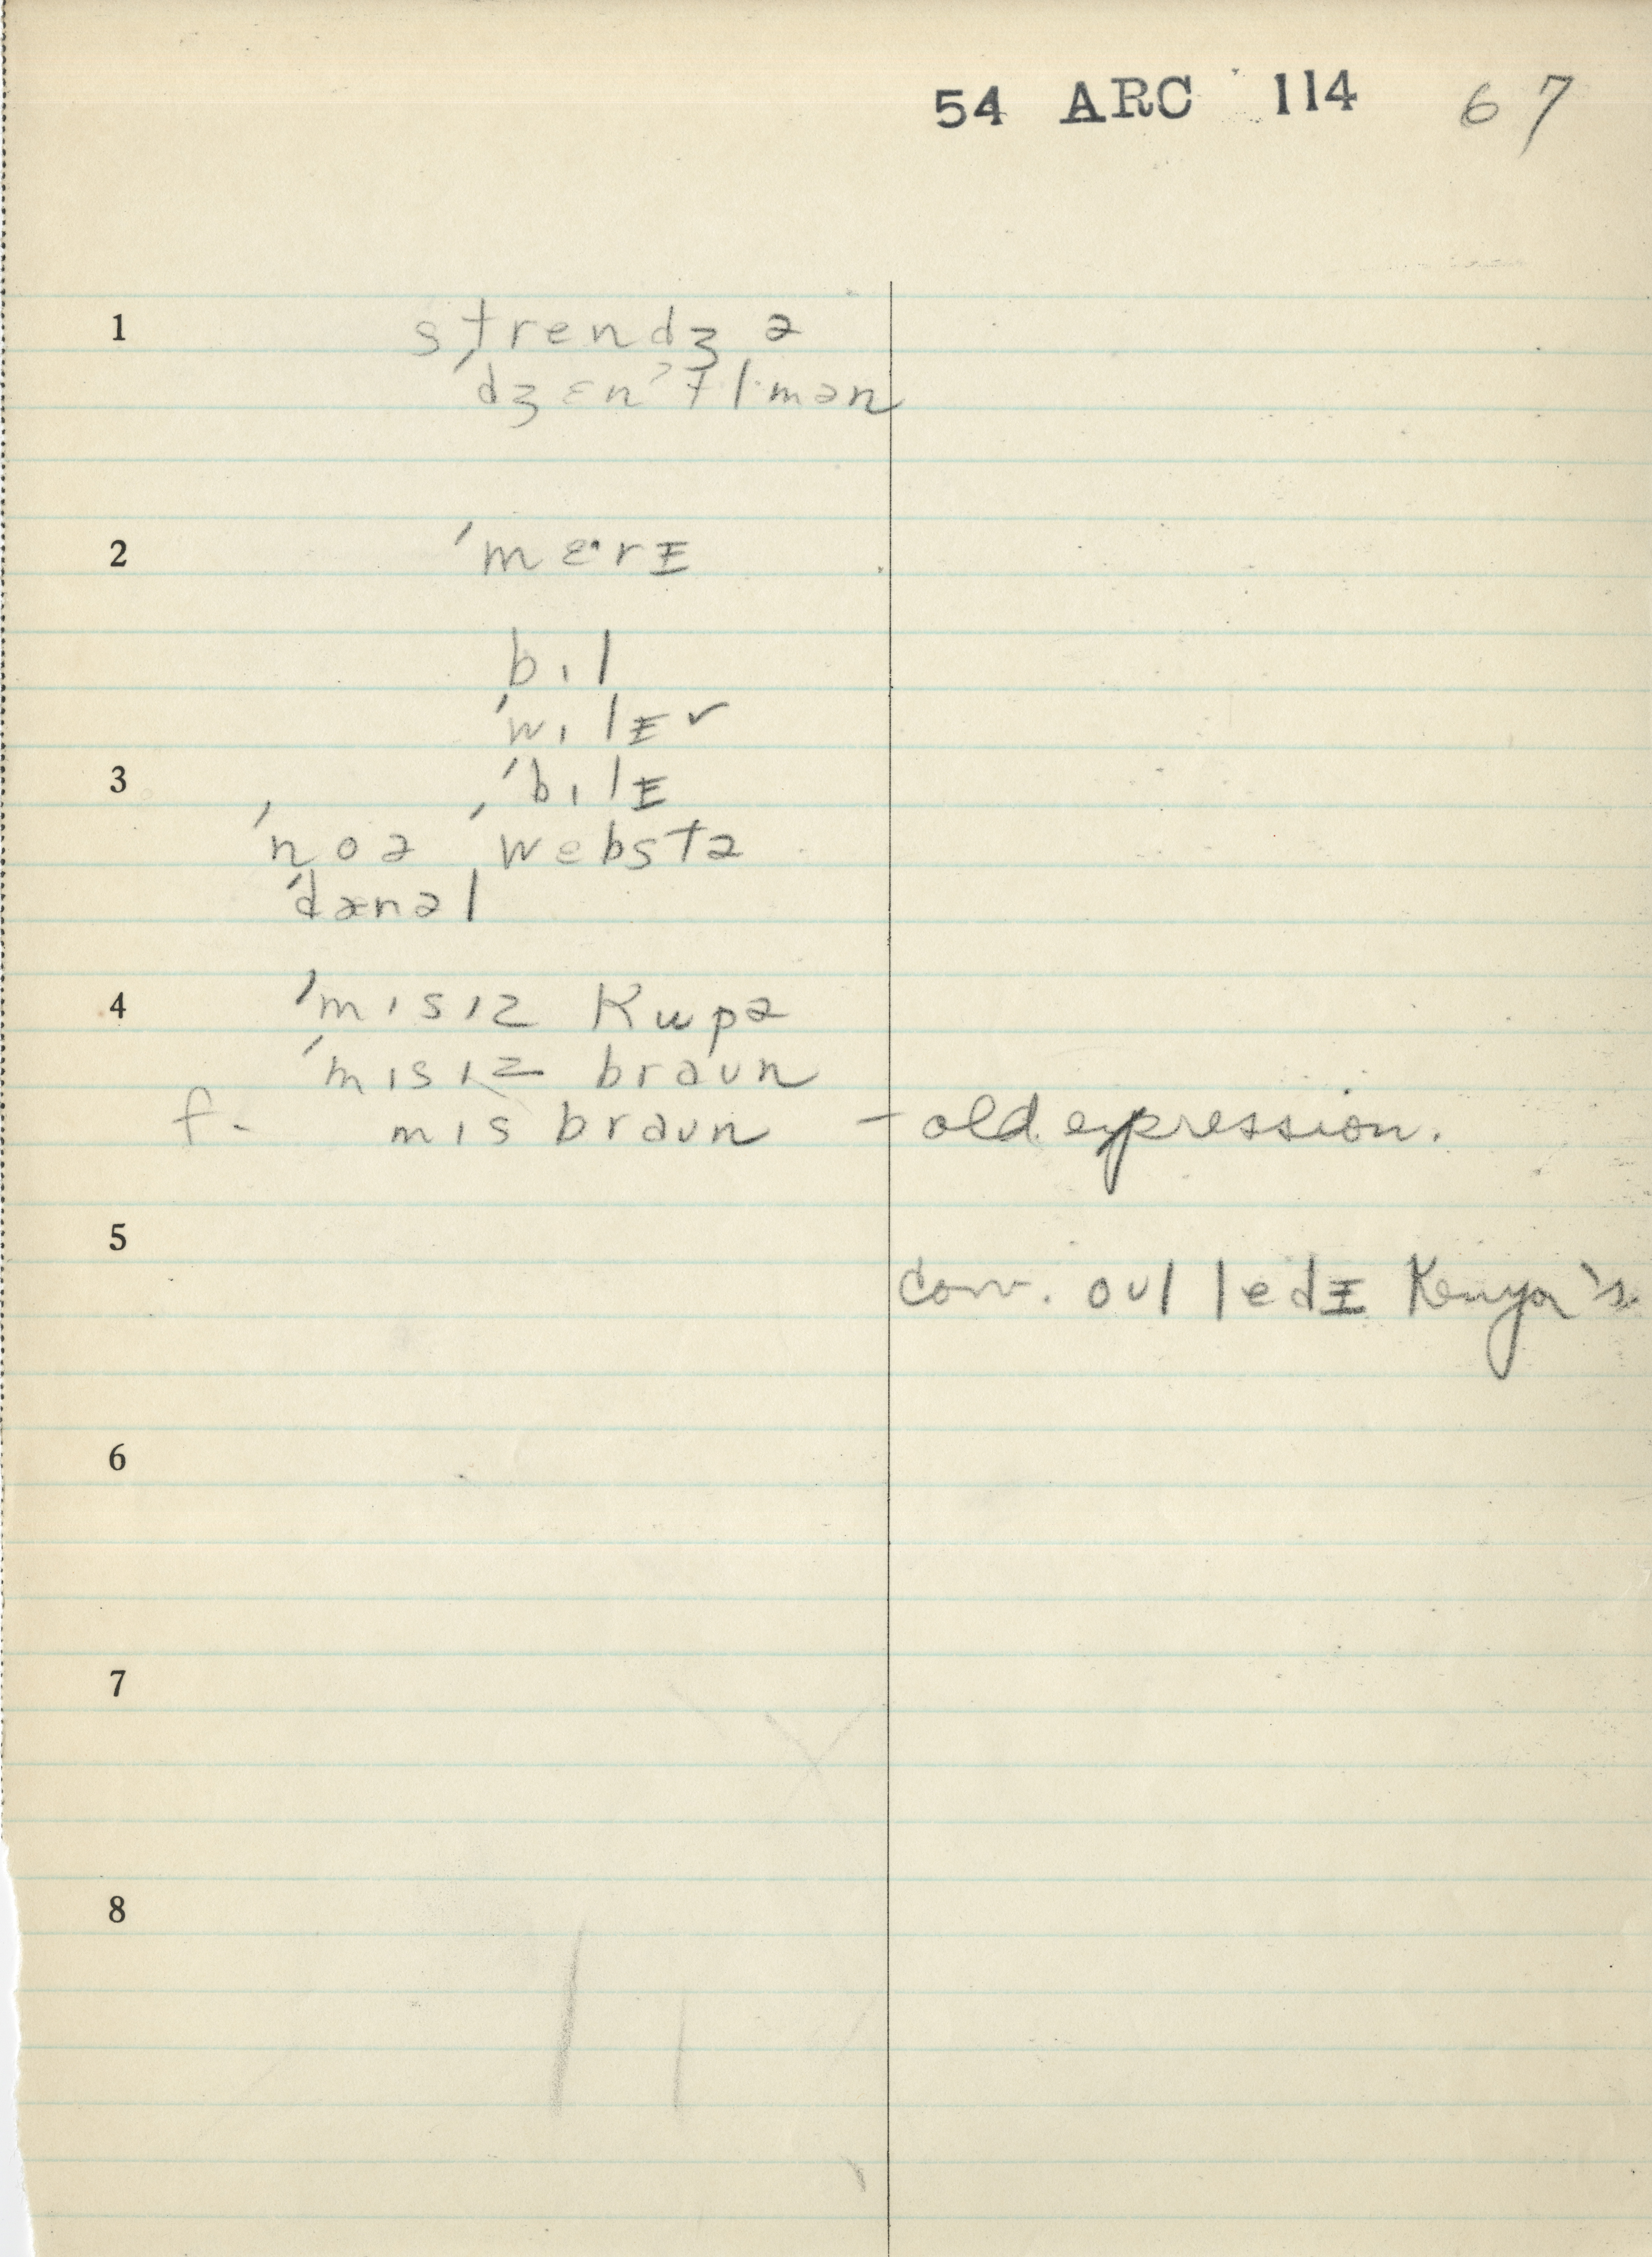 54 ARC 114 67
1 strendʒ ə
ˈdʒɛnˀtl̩mən
2 ˈmɛˑrᵻ
bɪl
ˈwɪlᵻ ✓
3 ˈbɪlᵻ
ˈnoə ˌwebstə
ˈdænəl
4 ˈmɪsɪz kupə
ˈmɪsɪz braʊn
f. mɪs braʊn – old expression.
5
conv. oʊl ledᵻ Kenyon's
6
7
8